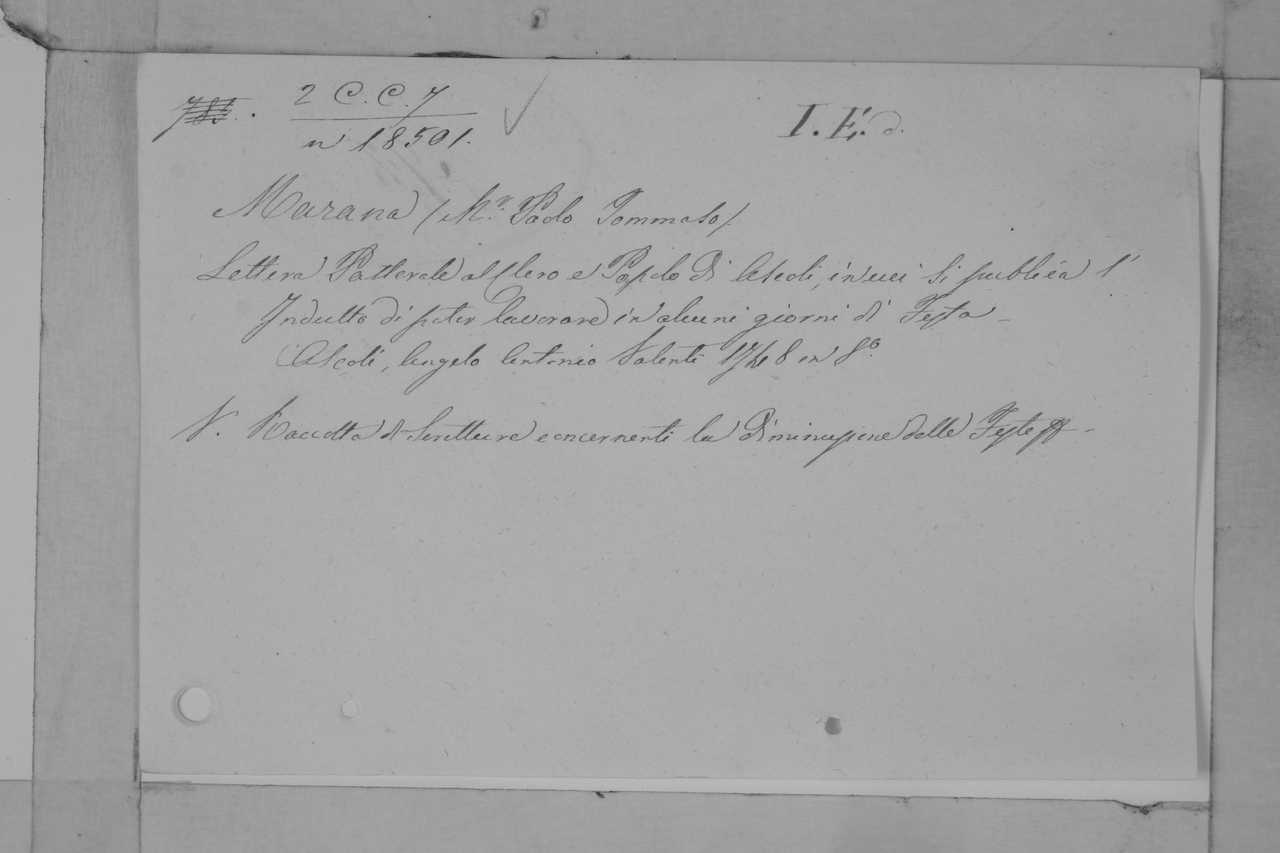 2 C. C. 7 I. E. d.
n 18501.
Marana (M.r Paolo Tommaso)
Lettera Pastorale al Clero e Popolo di Ascoli, in cui si publica l'
Indulto di poter lavorare in alcuni giorni di Festa
Ascoli, Angelo Antonio Valenti 1748 in 8°
V. Raccolta di Scritture concernenti la Diminuzione delle Feste